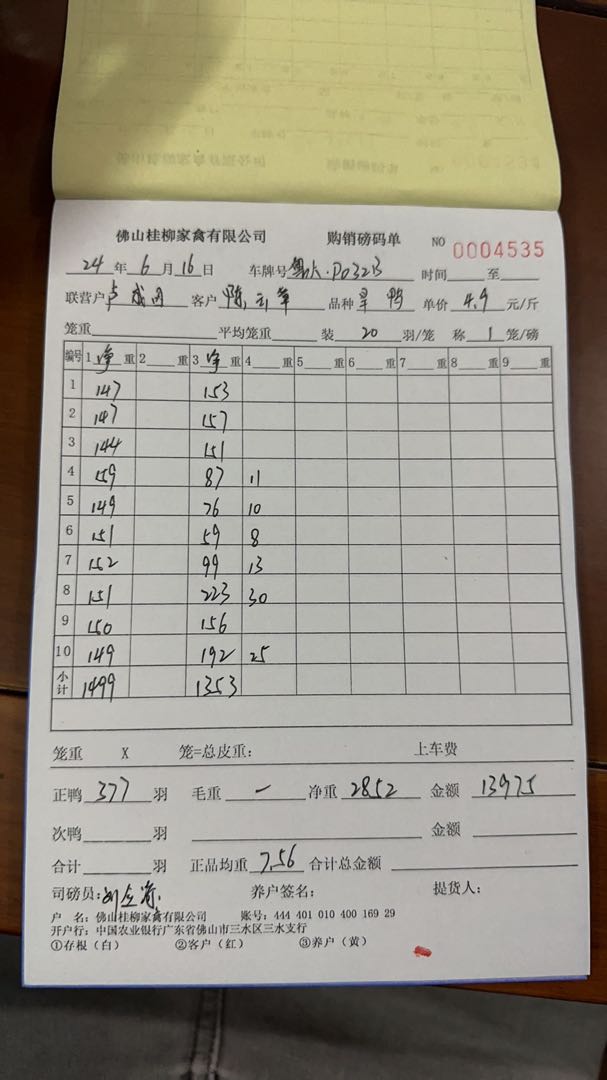 佛山桂柳家禽有限公司 购销磅码单 NO 0004535
24 年 6 月 16 日 车牌号 时间 至
联营户 卢成 客户 陈 品种 鸭 单价 4.9 元/斤
笼重 平均笼重 装 20 羽/笼 称 1 笼/磅
编号 1 净 重 2 重 3 净 重 4 重 5 重 6 重 7 重 8 重 9 重
1 147 153
2 147 157
3 144 151
4 159 87 11
5 149 76 10
6 151 59 8
7 152 99 13
8 151 223 30
9 150 156
10 149 192 25
小计 1499 1353
笼重 X 笼=总皮重: 上车费
正鸭 377 羽 毛重 — 净重 2852 金额 13975
次鸭 羽 金额
合计 羽 正品均重 7.56 合计总金额
司磅员: 养户签名: 提货人:
户 名: 佛山桂柳家禽有限公司 账号: 444 401 010 400 169 29
开户行: 中国农业银行广东省佛山市三水区三水支行
①存根（白） ②客户（红） ③养户（黄）